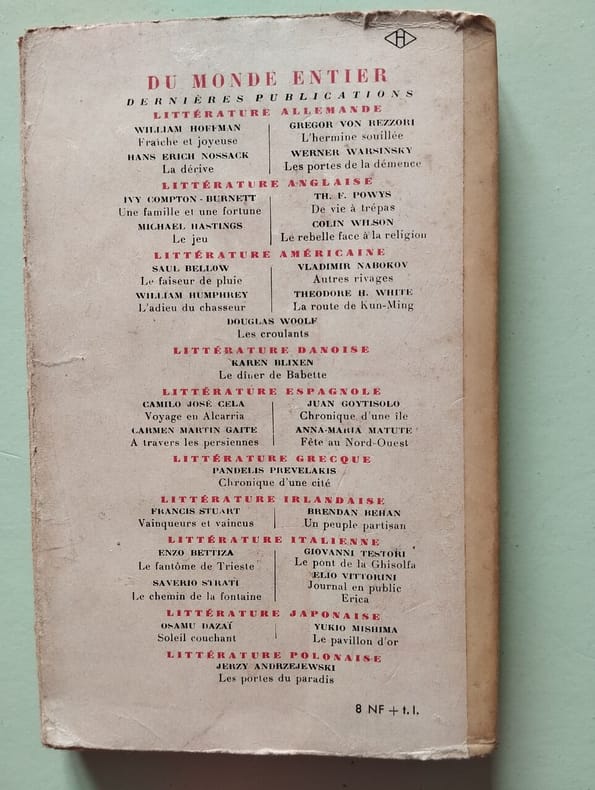 H
DU MONDE ENTIER
DERNIÈRES PUBLICATIONS
LITTÉRATURE ALLEMANDE
WILLIAM HOFFMAN
Fraîche et joyeuse
HANS ERICH NOSSACK
La dérive
GREGOR VON REZZORI
L'hermine souillée
WERNER WARSINSKY
Les portes de la démence
LITTÉRATURE ANGLAISE
IVY COMPTON-BURNETT
Une famille et une fortune
MICHAEL HASTINGS
Le jeu
TH. F. POWYS
De vie à trépas
COLIN WILSON
Le rebelle face à la religion
LITTÉRATURE AMÉRICAINE
SAUL BELLOW
Le faiseur de pluie
WILLIAM HUMPHREY
L'adieu du chasseur
VLADIMIR NABOKOV
Autres rivages
THEODORE H. WHITE
La route de Kun-Ming
DOUGLAS WOOLF
Les croulants
LITTÉRATURE DANOISE
KAREN BLIXEN
Le dîner de Babette
LITTÉRATURE ESPAGNOLE
CAMILO JOSÉ CELA
Voyage en Alcarria
CARMEN MARTIN GAITE
A travers les persiennes
JUAN GOYTISOLO
Chronique d'une île
ANNA-MARIA MATUTE
Fête au Nord-Ouest
LITTÉRATURE GRECQUE
PANDELIS PREVELAKIS
Chronique d'une cité
LITTÉRATURE IRLANDAISE
FRANCIS STUART
Vainqueurs et vaincus
BRENDAN BEHAN
Un peuple partisan
LITTÉRATURE ITALIENNE
ENZO BETTIZA
Le fantôme de Trieste
SAVERIO STRATI
Le chemin de la fontaine
GIOVANNI TESTORI
Le pont de la Ghisolfa
ELIO VITTORINI
Journal en public
Erica
LITTÉRATURE JAPONAISE
OSAMU DAZAÏ
Soleil couchant
YUKIO MISHIMA
Le pavillon d'or
LITTÉRATURE POLONAISE
JERZY ANDRZEJEWSKI
Les portes du paradis
8 NF + t. l.